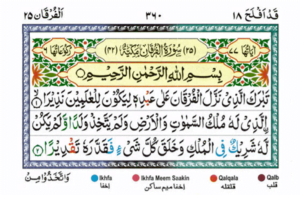 قَدْ اَفْلَحَ ١٨ ٣٦٠ اَلْفُرْقَان ٢٥
اٰيَاتُهَا ٧٧ (٢٥) سُوْرَةُ الْفُرْقَانِ مَكِّيَّةٌ (٤٢) رُكُوْعَاتُهَا ٦
بِسْمِ اللّٰهِ الرَّحْمٰنِ الرَّحِيْمِ
تَبٰرَكَ الَّذِىْ نَزَّلَ الْفُرْقَانَ عَلٰى عَبْدِهٖ لِيَكُوْنَ لِلْعٰلَمِيْنَ نَذِيْرَا ۙ‏﴿١﴾
الَّذِىْ لَهٗ مُلْكُ السَّمٰوٰتِ وَالْاَرْضِ وَلَمْ يَتَّخِذْ وَلَدًا وَّلَمْ يَكُنْ
لَّهٗ شَرِيْكٌ فِى الْمُلْكِ وَخَلَقَ كُلَّ شَىْءٍ فَقَدَّرَهٗ تَقْدِيْرًا ﴿٢﴾
وَاتَّخَذُوْا مِنْ Ikhfa اخفا Ikhfa Meem Saakin اخفا میم ساکن Qalqala قلقلہ Qalb قلب